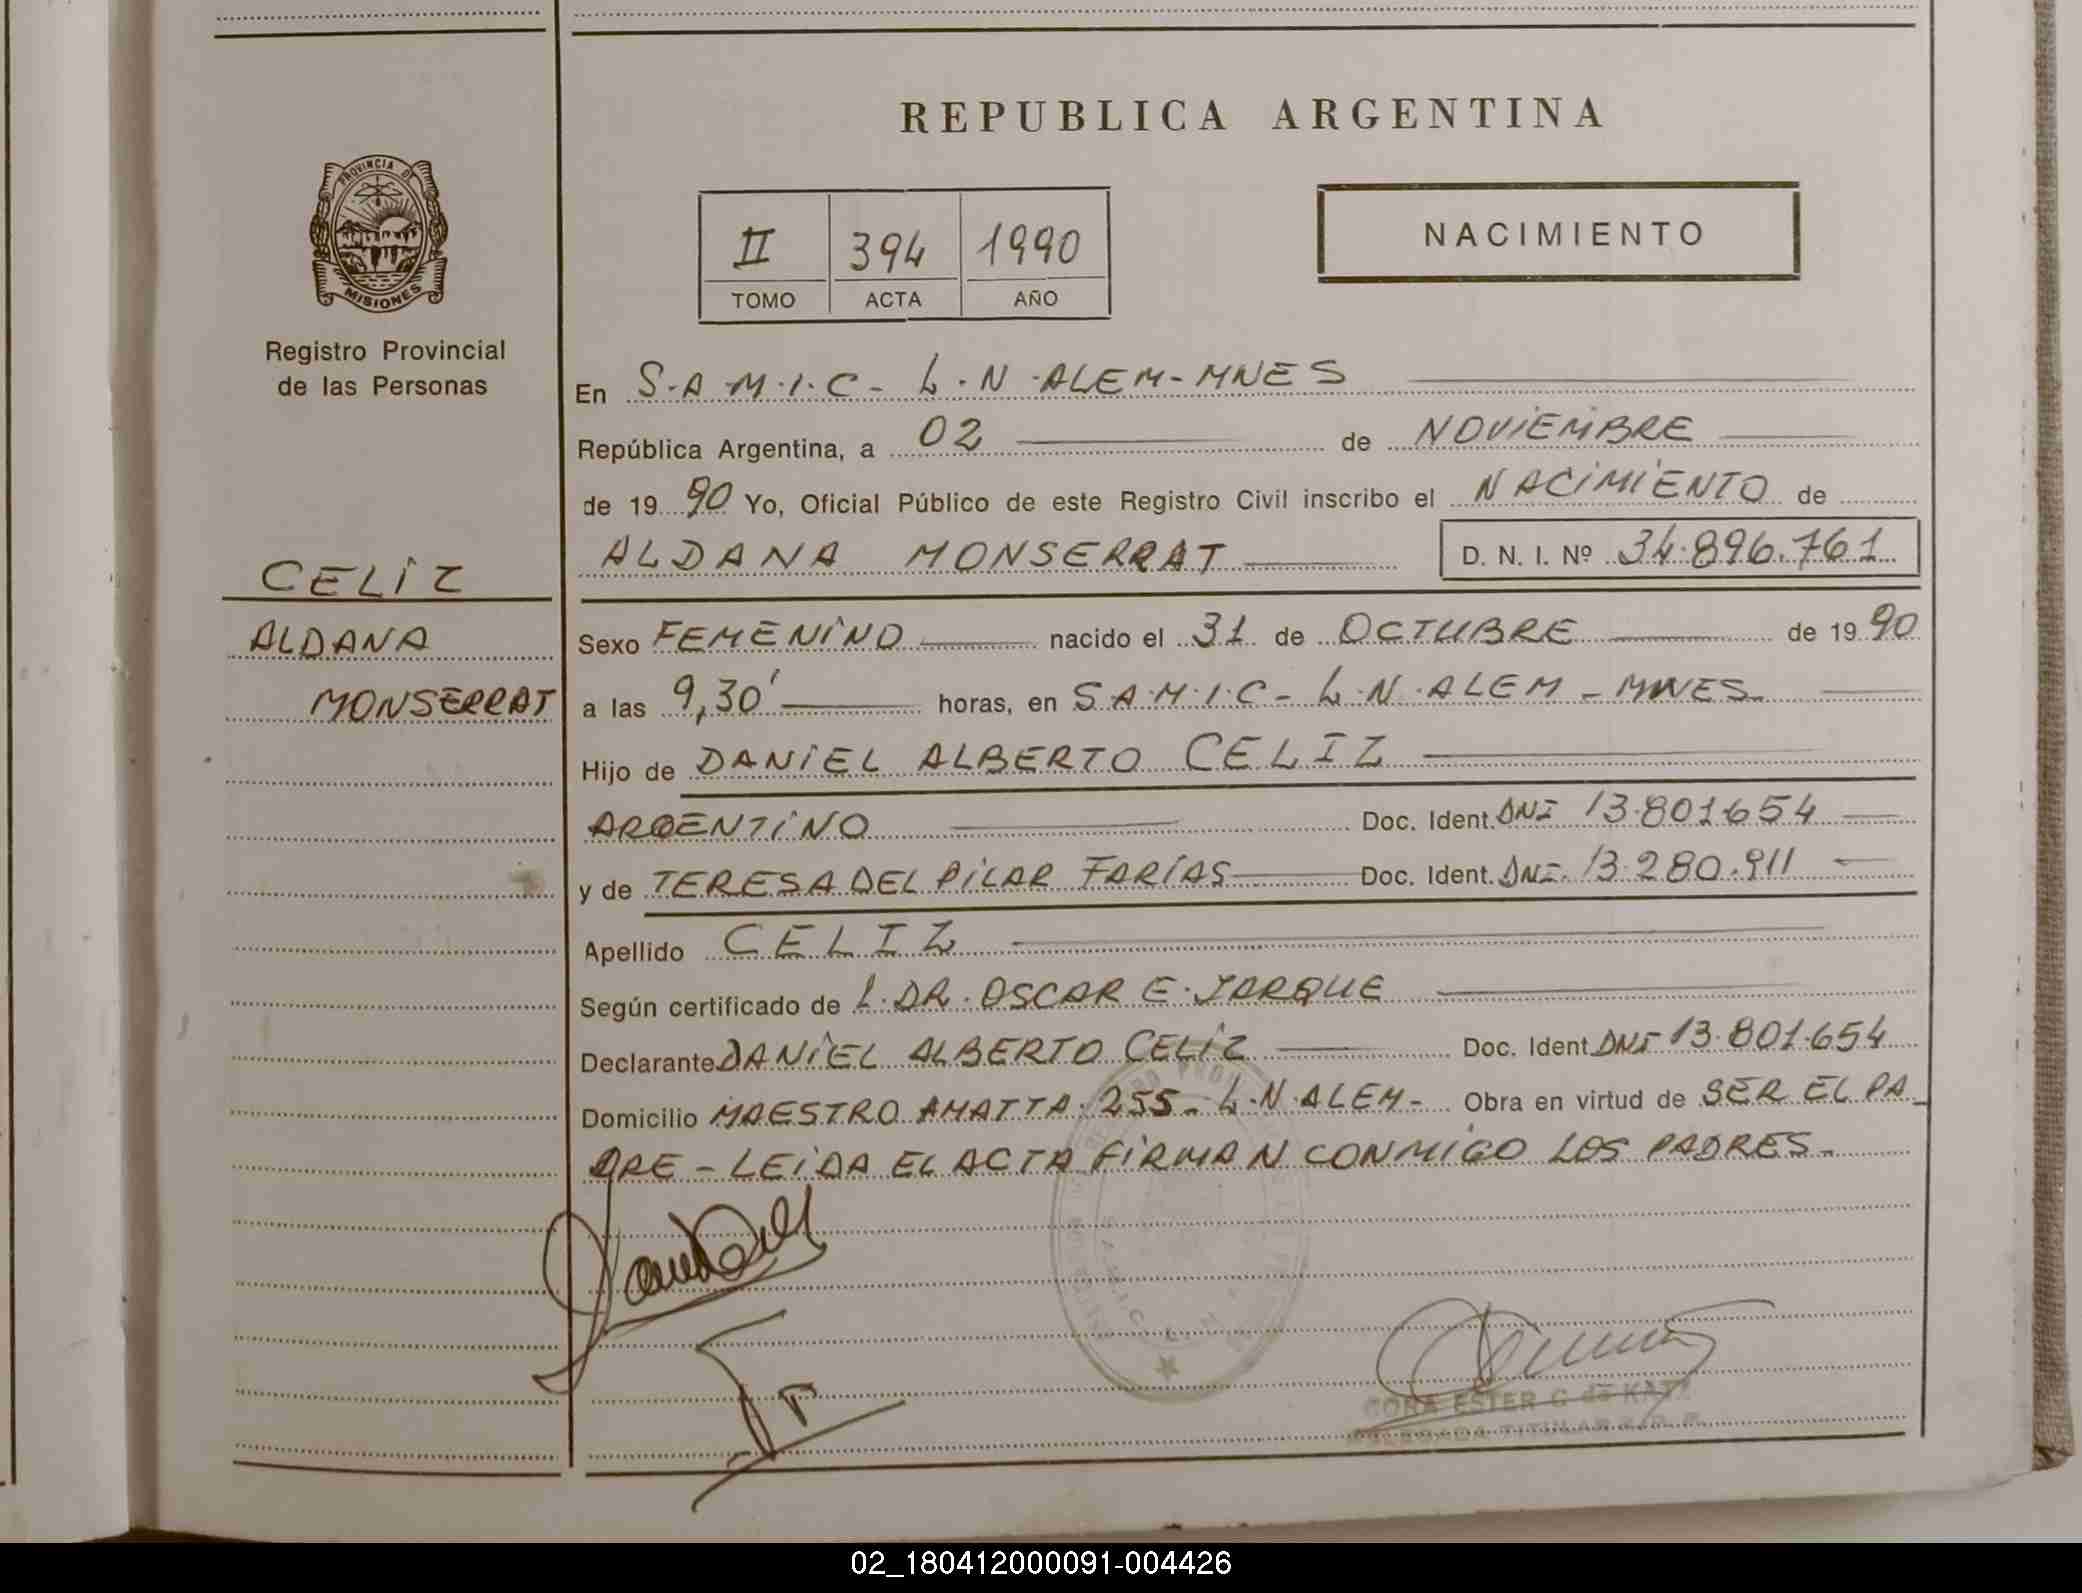 REPUBLICA ARGENTINA
PROVINCIA DE
MISIONES
Registro Provincial
de las Personas
II 394 1990
TOMO ACTA AÑO
NACIMIENTO
En S.A.M.I.C- L.N.ALEM-MNES
República Argentina, a 02 de NOVIEMBRE
de 19 90 Yo, Oficial Público de este Registro Civil inscribo el NACIMIENTO de
ALDANA MONSERRAT D. N. I. Nº 34.896.761
CELIZ
ALDANA
MONSERRAT
Sexo FEMENINO nacido el 31 de OCTUBRE de 19 90
a las 9,30' horas, en S.A.M.I.C- L.N.ALEM - MNES-
Hijo de DANIEL ALBERTO CELIZ
ARGENTINO Doc. Ident. DNI 13.801654
y de TERESA DEL PILAR FARÍAS Doc. Ident. DNI. 13.280.911
Apellido CELIZ
Según certificado de L.DR. OSCAR E. JARQUE
Declarante DANIEL ALBERTO CELIZ Doc. Ident. DNI 13.801.654
Domicilio MAESTRO AMATTA 255- L.N.ALEM- Obra en virtud de SER EL PA-
DRE - LEIDA EL ACTA FIRMAN CONMIGO LOS PADRES-
CORA ESTER G de
DELEGADA TITULAR
02_180412000091-004426